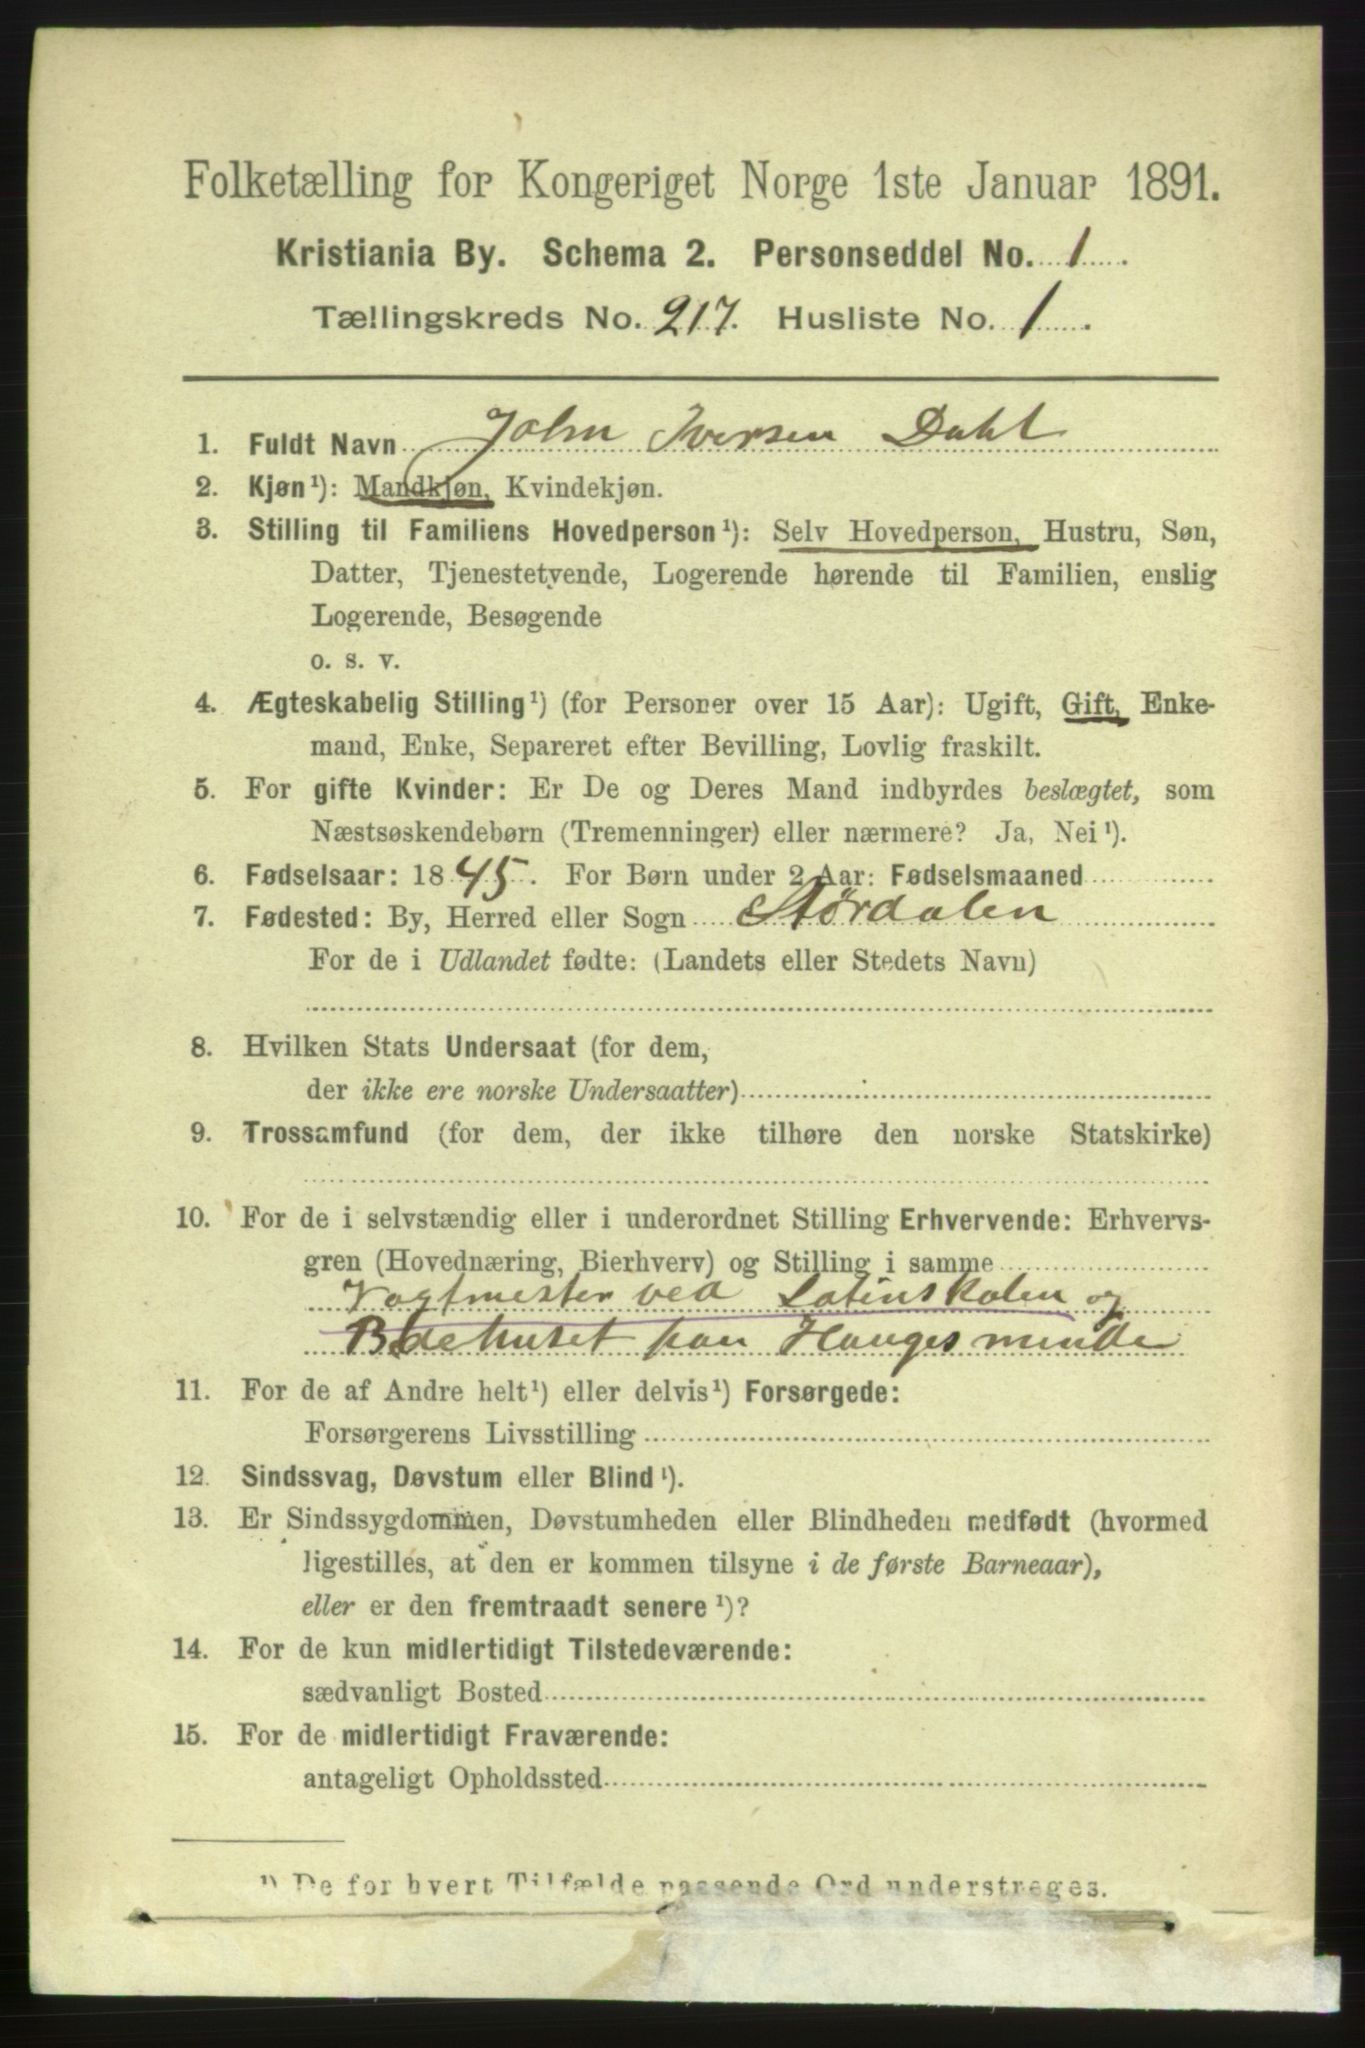 Folketælling for Kongeriget Norge 1ste Januar 1891.
Kristiania By. Schema 2. Personseddel No. 1.
Tællingskreds No. 217. Husliste No. 1.
1. Fuldt Navn John Iversen Dahl
2. Kjøn¹): Mandkjøn, Kvindekjøn.
3. Stilling til Familiens Hovedperson¹): Selv Hovedperson, Hustru, Søn,
Datter, Tjenestetyende, Logerende hørende til Familien, enslig
Logerende, Besøgende
o. s. v.
4. Ægteskabelig Stilling¹) (for Personer over 15 Aar): Ugift, Gift, Enke-
mand, Enke, Separeret efter Bevilling, Lovlig fraskilt.
5. For gifte Kvinder: Er De og Deres Mand indbyrdes beslægtet, som
Næstsøskendebørn (Tremenninger) eller nærmere? Ja, Nei¹).
6. Fødselsaar: 1845. For Børn under 2 Aar: Fødselsmaaned
7. Fødested: By, Herred eller Sogn Størdalen
For de i Udlandet fødte: (Landets eller Stedets Navn)
8. Hvilken Stats Undersaat (for dem,
der ikke ere norske Undersaatter)
9. Trossamfund (for dem, der ikke tilhøre den norske Statskirke)
10. For de i selvstændig eller i underordnet Stilling Erhvervende: Erhvervs-
gren (Hovednæring, Bierhverv) og Stilling i samme
Vagtmester ved Latinskolen og
Bedehuset paa Hauges minde
11. For de af Andre helt¹) eller delvis¹) Forsørgede:
Forsørgerens Livsstilling
12. Sindssvag, Døvstum eller Blind¹).
13. Er Sindssygdommen, Døvstumheden eller Blindheden medfødt (hvormed
ligestilles, at den er kommen tilsyne i de første Barneaar),
eller er den fremtraadt senere¹)?
14. For de kun midlertidigt Tilstedeværende:
sædvanligt Bosted
15. For de midlertidigt Fraværende:
antageligt Opholdssted
¹) De for hvert Tilfælde passende Ord understreges.